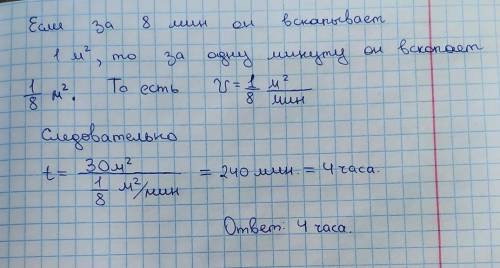 Если за 8 мин он вскапывает
1 м², то за одну минуту он вскопает
1/8 м². То есть V = 1/8 м²/мин
Следовательно
t = 30 м² / (1/8 м²/мин) = 240 мин. = 4 часа.
Ответ: 4 часа.